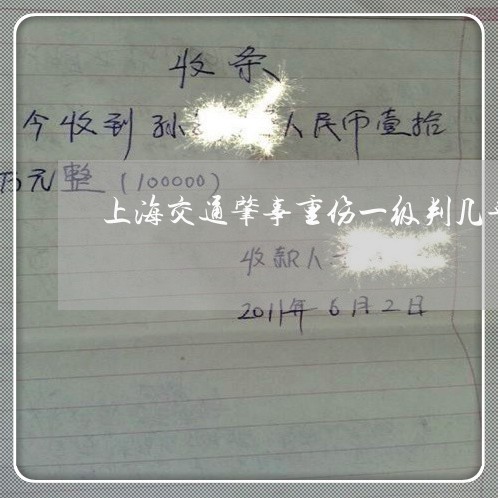 收条
今收到孙 人民币壹拾
万元整（100000）
上海交通肇事重伤一级判几
收款人
2011年6月2日